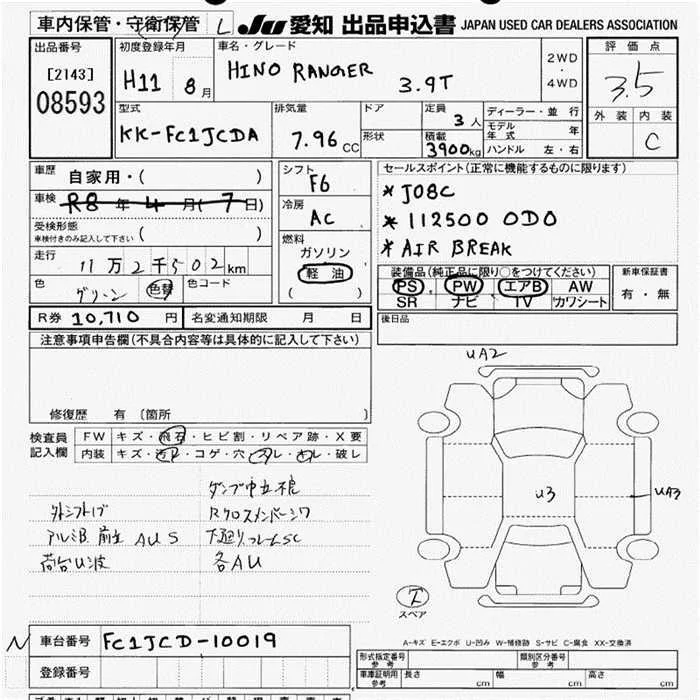 車内保管・守衛保管 L JU 愛知 出品申込書 JAPAN USED CAR DEALERS ASSOCIATION
出品番号
[2143]
08593
初度登録年月
H11 8月
車名・グレード
HINO RANGER 3.9T
2WD
・
4WD
評価点
3.5
外装 内装
C
型式
KK-FC1JCDA
排気量
7.96 CC
ドア
形状
定員
3人
積載
3900kg
ディーラー・並行
モデル年式 年
ハンドル 左・右
車歴 自家用・( )
車検 R8年4月(7日)
受検形態
車検付きのみ記入して下さい ( )
走行 11万2千502km
色 グリーン 色替 色コード
シフト
F6
冷房
AC
燃料
ガソリン
軽油
( )
セールスポイント(正常に機能するものに限ります)
* J08C
* 112500 ODO
* AIR BREAK
装備品(純正品に限り○をつけてください)
PS PW エアB AW
SR ナビ TV カワシート
新車保証書
有・無
R券 10,710円 名変通知期限 月 日
後日品
注意事項申告欄(不具合内容等は具体的に記入して下さい)
修復歴 有 (箇所 )
検査員記入欄
FW キズ・飛石・ヒビ割・リペア跡・X要
内装 キズ・汚レ・コゲ・穴・スレ・キレ・破レ
外シフトゲ
アルミB 前立 AUS
荷台U波
Rクロスメンバーシワ
下廻りフレームSC
各AU
UA2
U3
UA3
スペア
A-キズ E-エクボ U-凹み W-補修跡 S-サビ C-腐食 XX-交換済
N 車台番号 FC1JCD-10019
登録番号
形式指定番号
参考
類別区分番号
参考
車庫証明用
参考
長さ cm 幅 cm 高さ cm